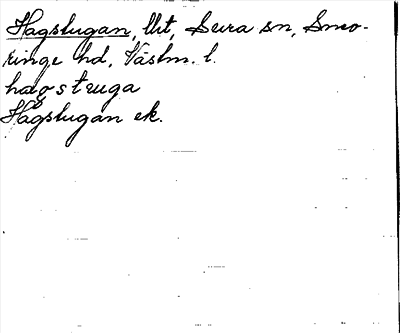 Hagstugan, lht, Sura sn, Sneo-
ringe hd, Västm. l.
hagstuga
Hagstugan ek.